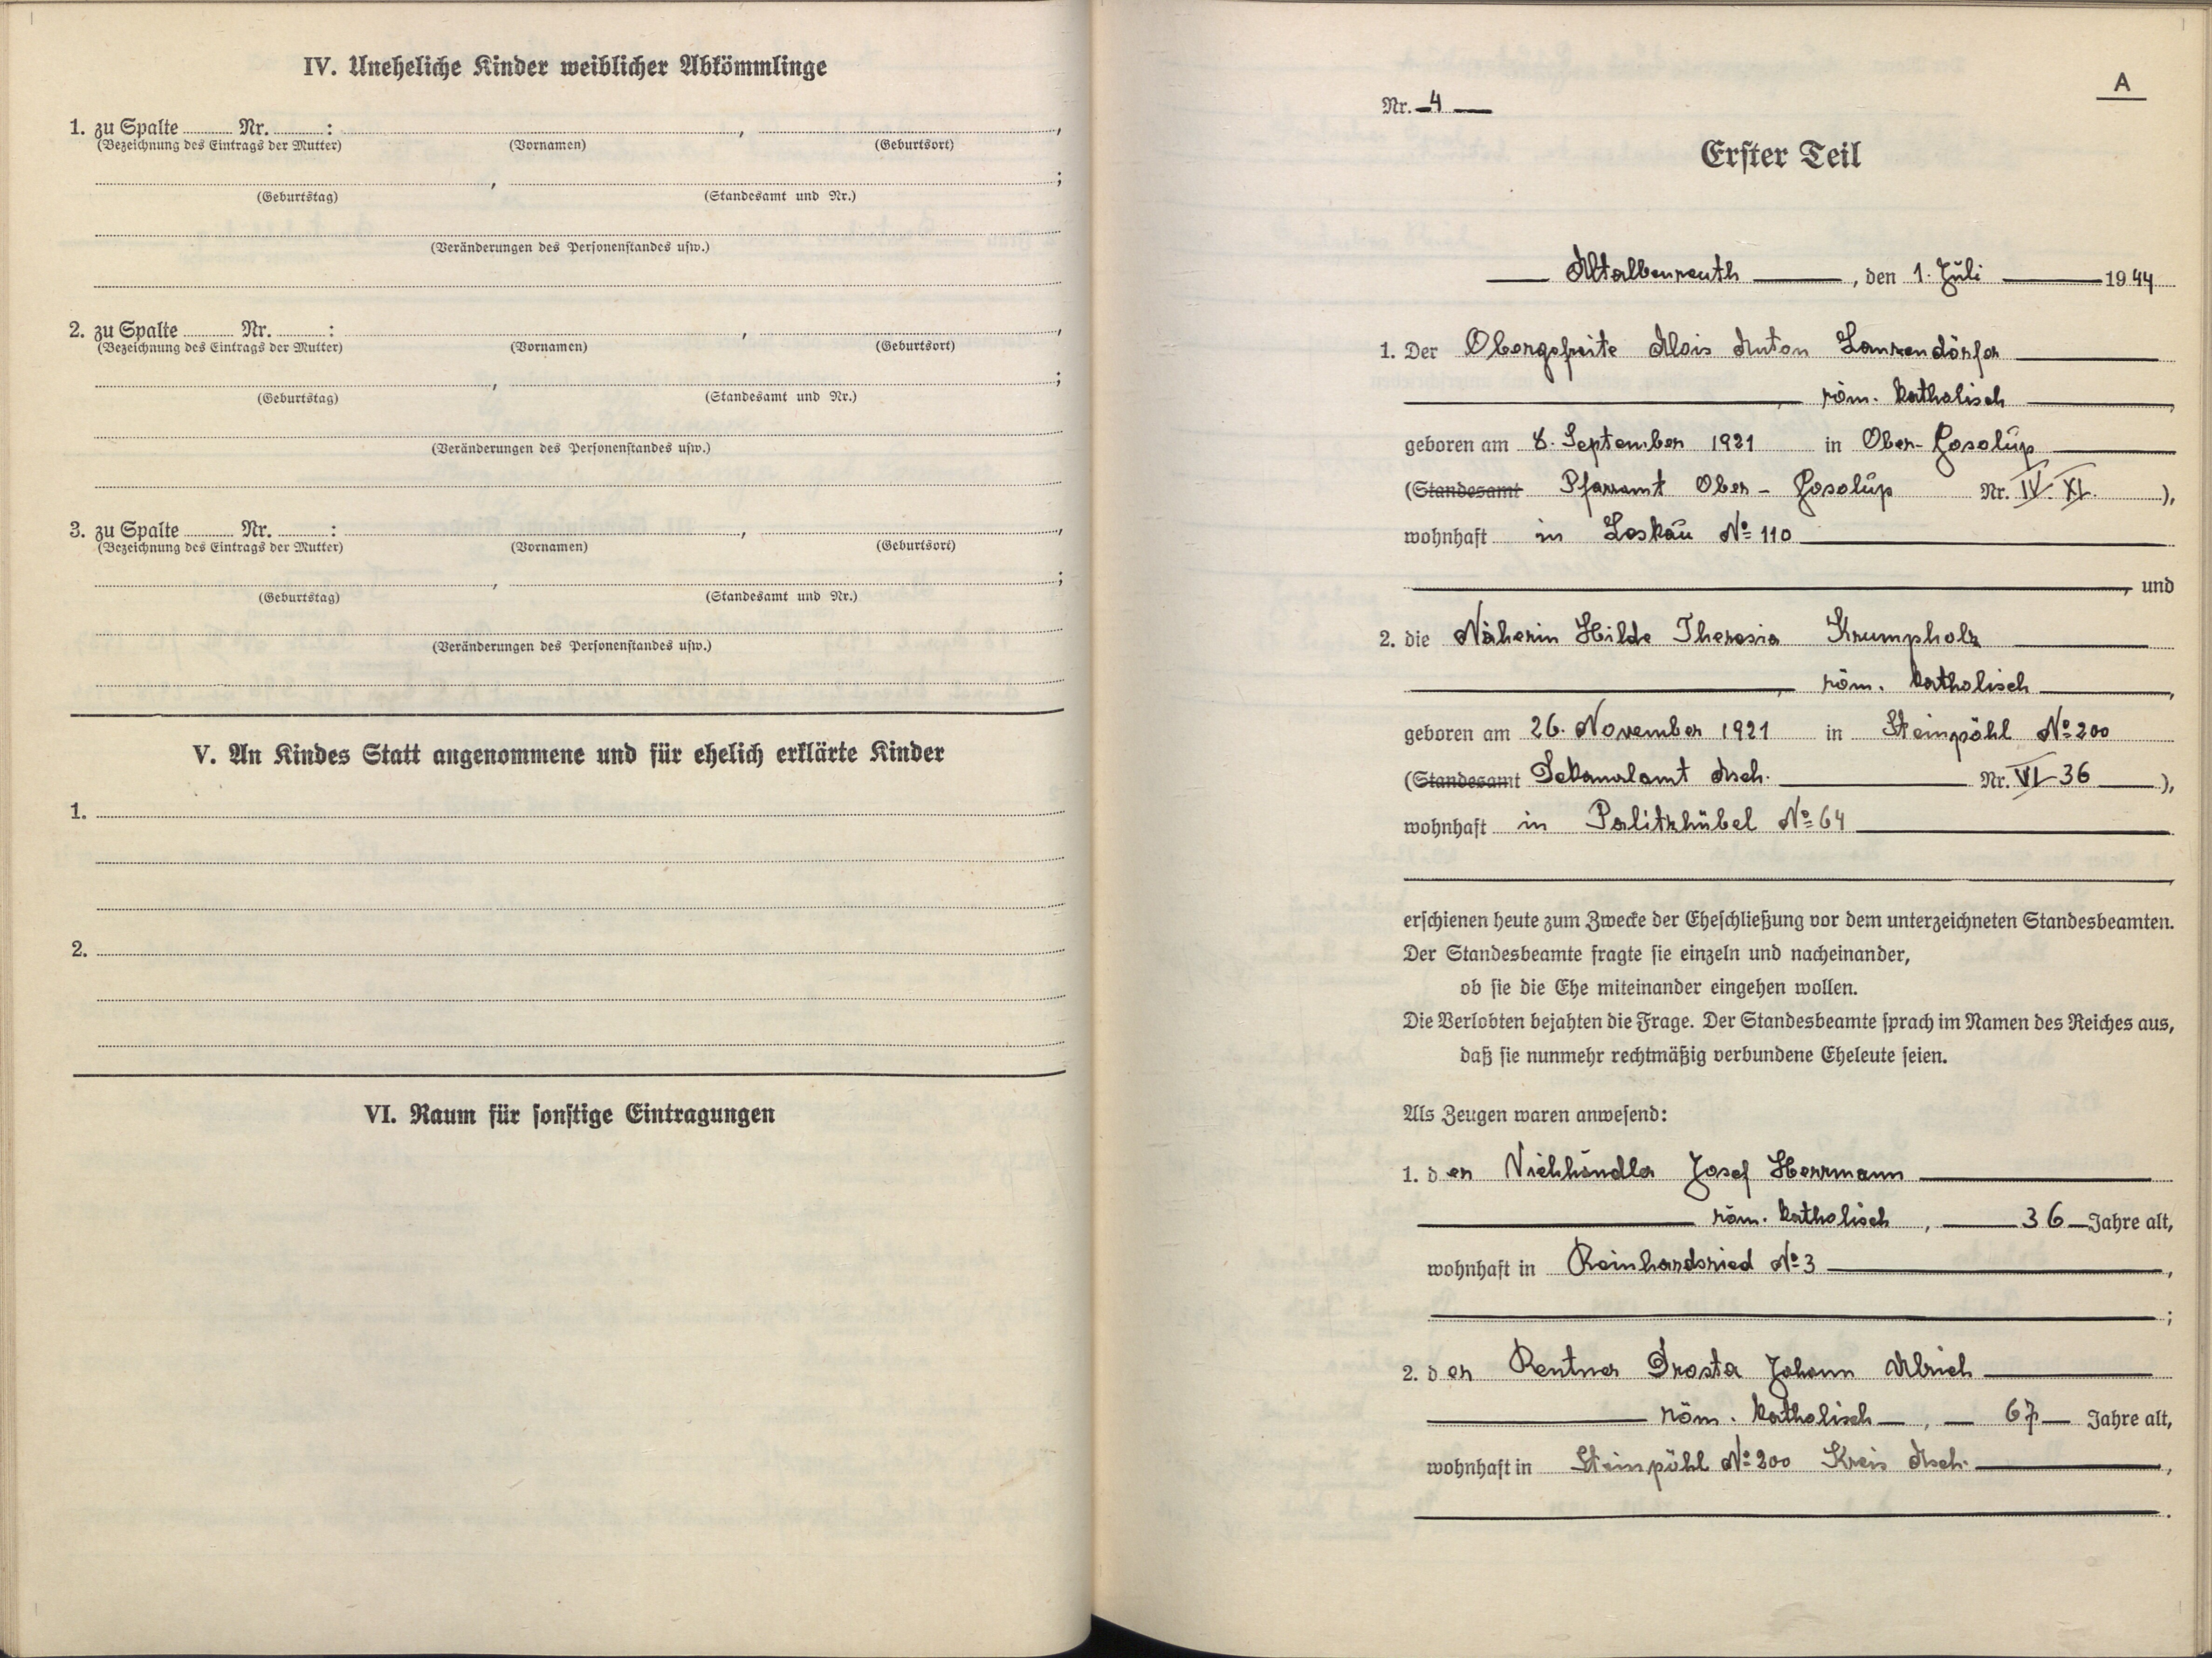 IV. Uneheliche Kinder weiblicher Abkömmlinge
1. zu Spalte ........ Nr. ........ : ,  ,
(Bezeichnung des Eintrags der Mutter) (Vornamen) (Geburtsort)
, ;
(Geburtstag) (Standesamt und Nr.)
(Veränderungen des Personenstandes usw.)
2. zu Spalte ........ Nr. ........ : ,  ,
(Bezeichnung des Eintrags der Mutter) (Vornamen) (Geburtsort)
, ;
(Geburtstag) (Standesamt und Nr.)
(Veränderungen des Personenstandes usw.)
3. zu Spalte ........ Nr. ........ : ,  ,
(Bezeichnung des Eintrags der Mutter) (Vornamen) (Geburtsort)
, ;
(Geburtstag) (Standesamt und Nr.)
(Veränderungen des Personenstandes usw.)
V. An Kindes Statt angenommene und für ehelich erklärte Kinder
1.
2.
VI. Raum für sonstige Eintragungen
A
Nr. 4
Erster Teil
Altalbenreuth, den 1. Juli 1944
1. Der Obergefreite Alois Anton Lanzendörfer
, röm. katholisch,
geboren am 8. September 1921 in Ober-Gosolup
(Standesamt Pfarramt Ober-Gosolup Nr. IV. XI.),
wohnhaft in Leskau № 110
, und
2. die Näherin Hilde Theresia Krumpholz
, röm. katholisch,
geboren am 26. November 1921 in Steinpöhl № 200
(Standesamt Dekanalamt Asch. Nr. VI 36),
wohnhaft in Palitzhübel № 64
erschienen heute zum Zwecke der Eheschließung vor dem unterzeichneten Standesbeamten.
Der Standesbeamte fragte sie einzeln und nacheinander,
ob sie die Ehe miteinander eingehen wollen.
Die Verlobten bejahten die Frage. Der Standesbeamte sprach im Namen des Reiches aus,
daß sie nunmehr rechtmäßig verbundene Eheleute seien.
Als Zeugen waren anwesend:
1. d er Viehhändler Josef Herrmann
röm. katholisch, 36 Jahre alt,
wohnhaft in Reinhardsried № 3,
;
2. d er Rentner Drosta Johann Ulrich
röm. katholisch, 67 Jahre alt,
wohnhaft in Steinpöhl № 200 Kreis Asch.,
.